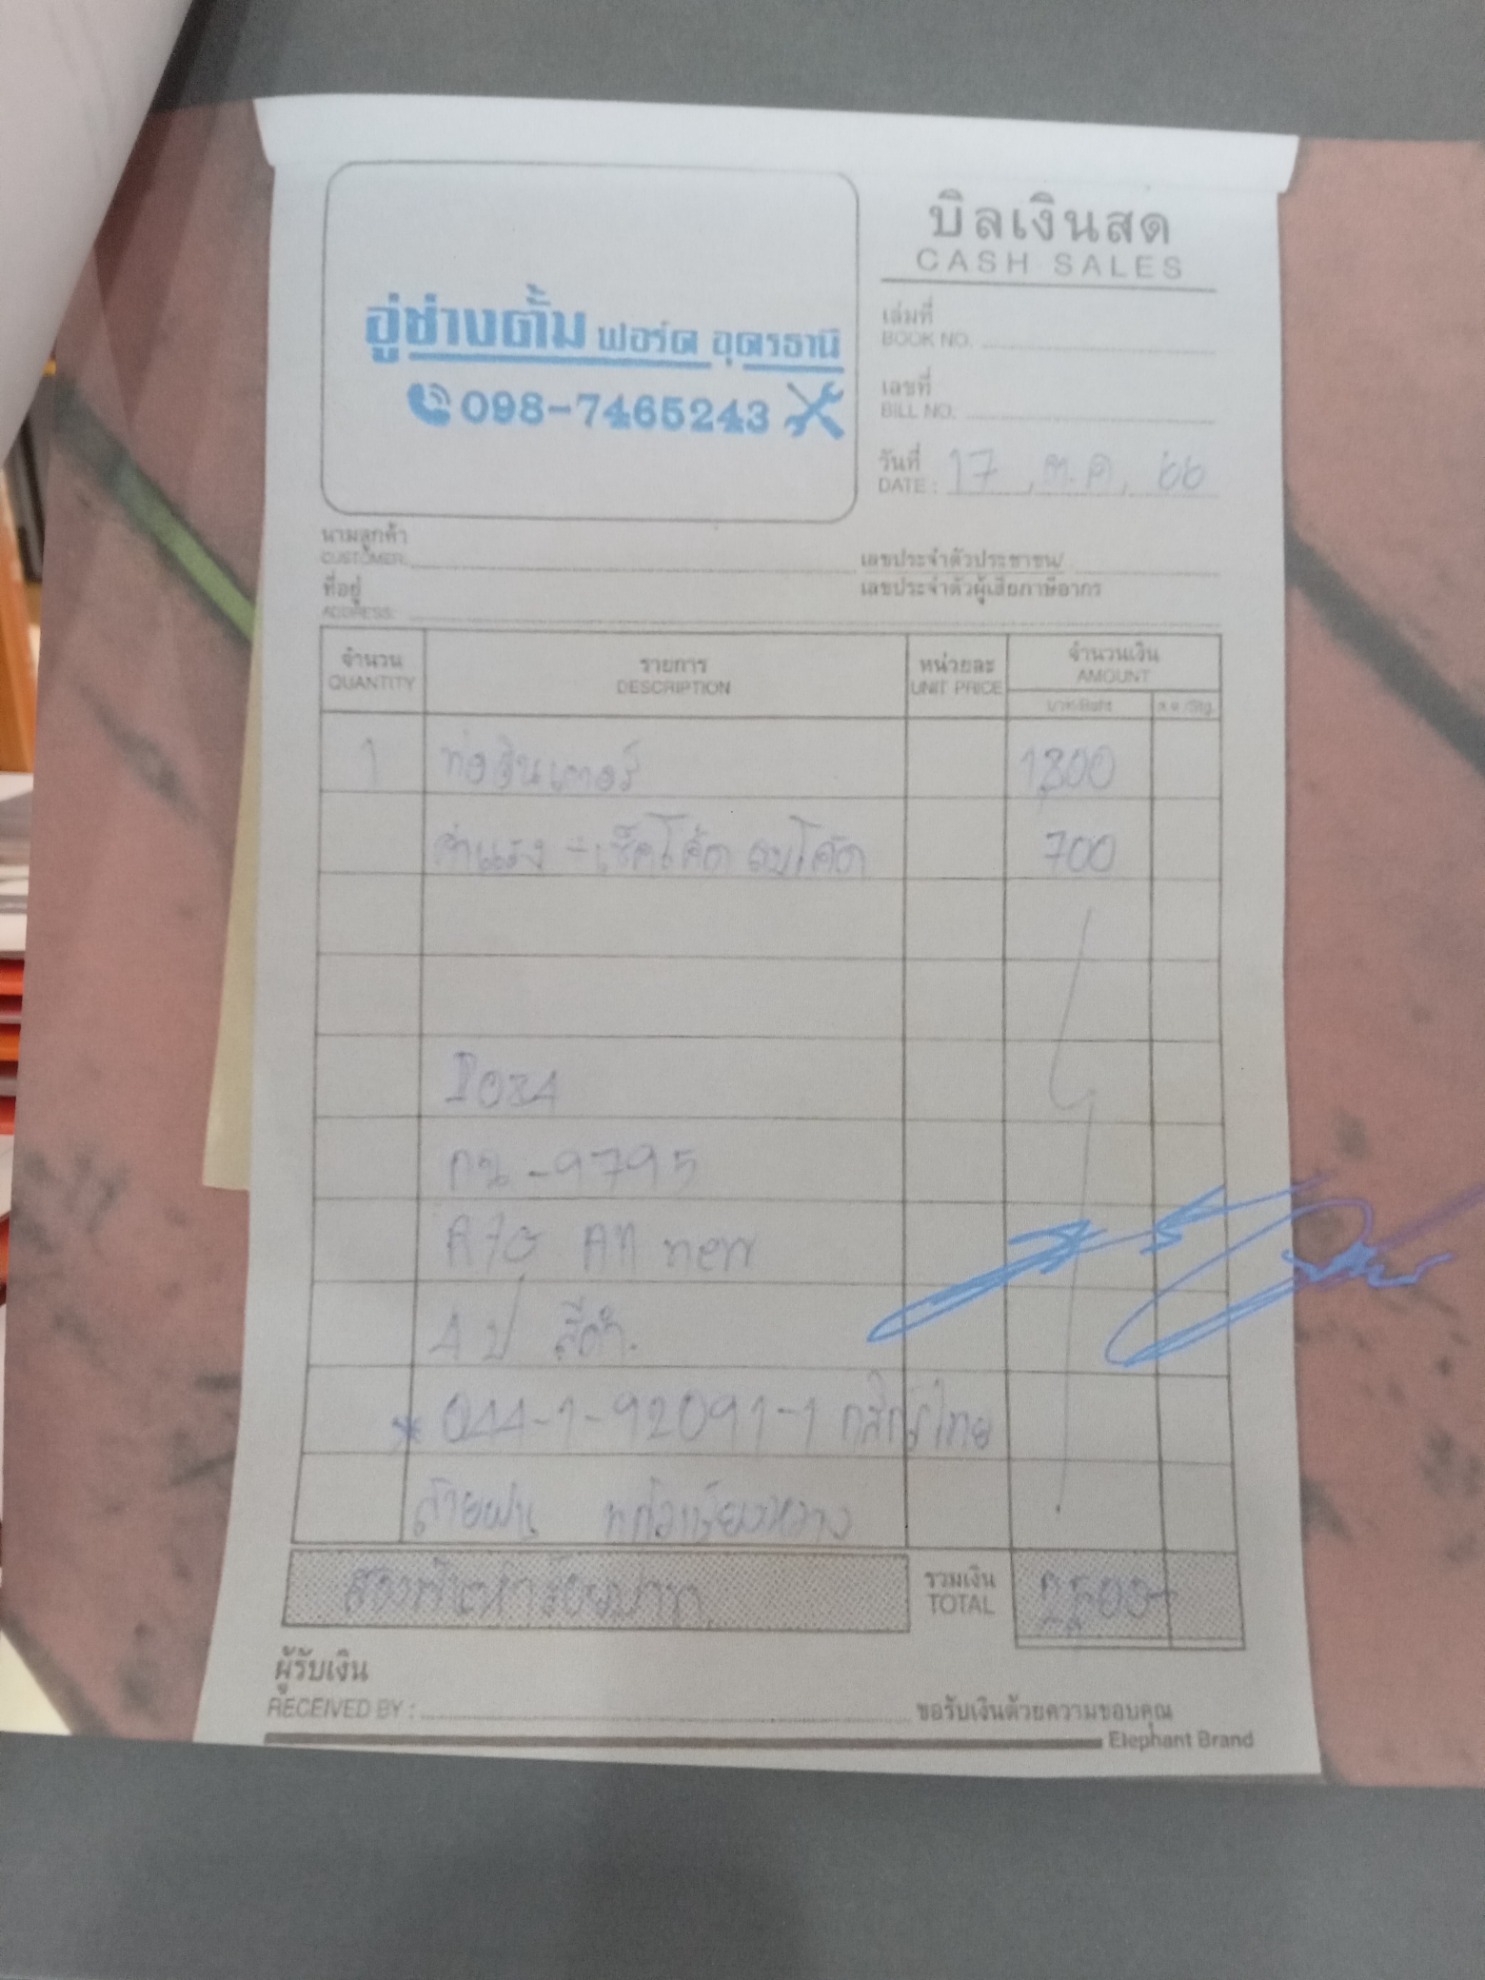 บิลเงินสด
CASH SALES
อู่ช่างตั้ม ฟอร์ด อุดรธานี
098-7465243
เล่มที่
BOOK NO.
เลขที่
BILL NO.
วันที่
DATE : 17 ต.ค. 66
นามลูกค้า
CUSTOMER
เลขประจำตัวประชาชน/
ที่อยู่
ADDRESS:
เลขประจำตัวผู้เสียภาษีอากร
จำนวน รายการ หน่วยละ จำนวนเงิน
QUANTITY DESCRIPTION UNIT PRICE AMOUNT
บาท/Baht ส.ต./Stg.
1 ท่ออินเตอร์ 1,800
ค่าแรง - เช็คโค้ด ลบโค้ด 700
P034
กน - 9795
All new
4 ป สีดำ
* 044-1-92091-1 กสิกรไทย
สายฝน
สองพันห้าร้อยบาท
รวมเงิน
TOTAL 2,500-
ผู้รับเงิน
RECEIVED BY :
ขอรับเงินด้วยความขอบคุณ
Elephant Brand